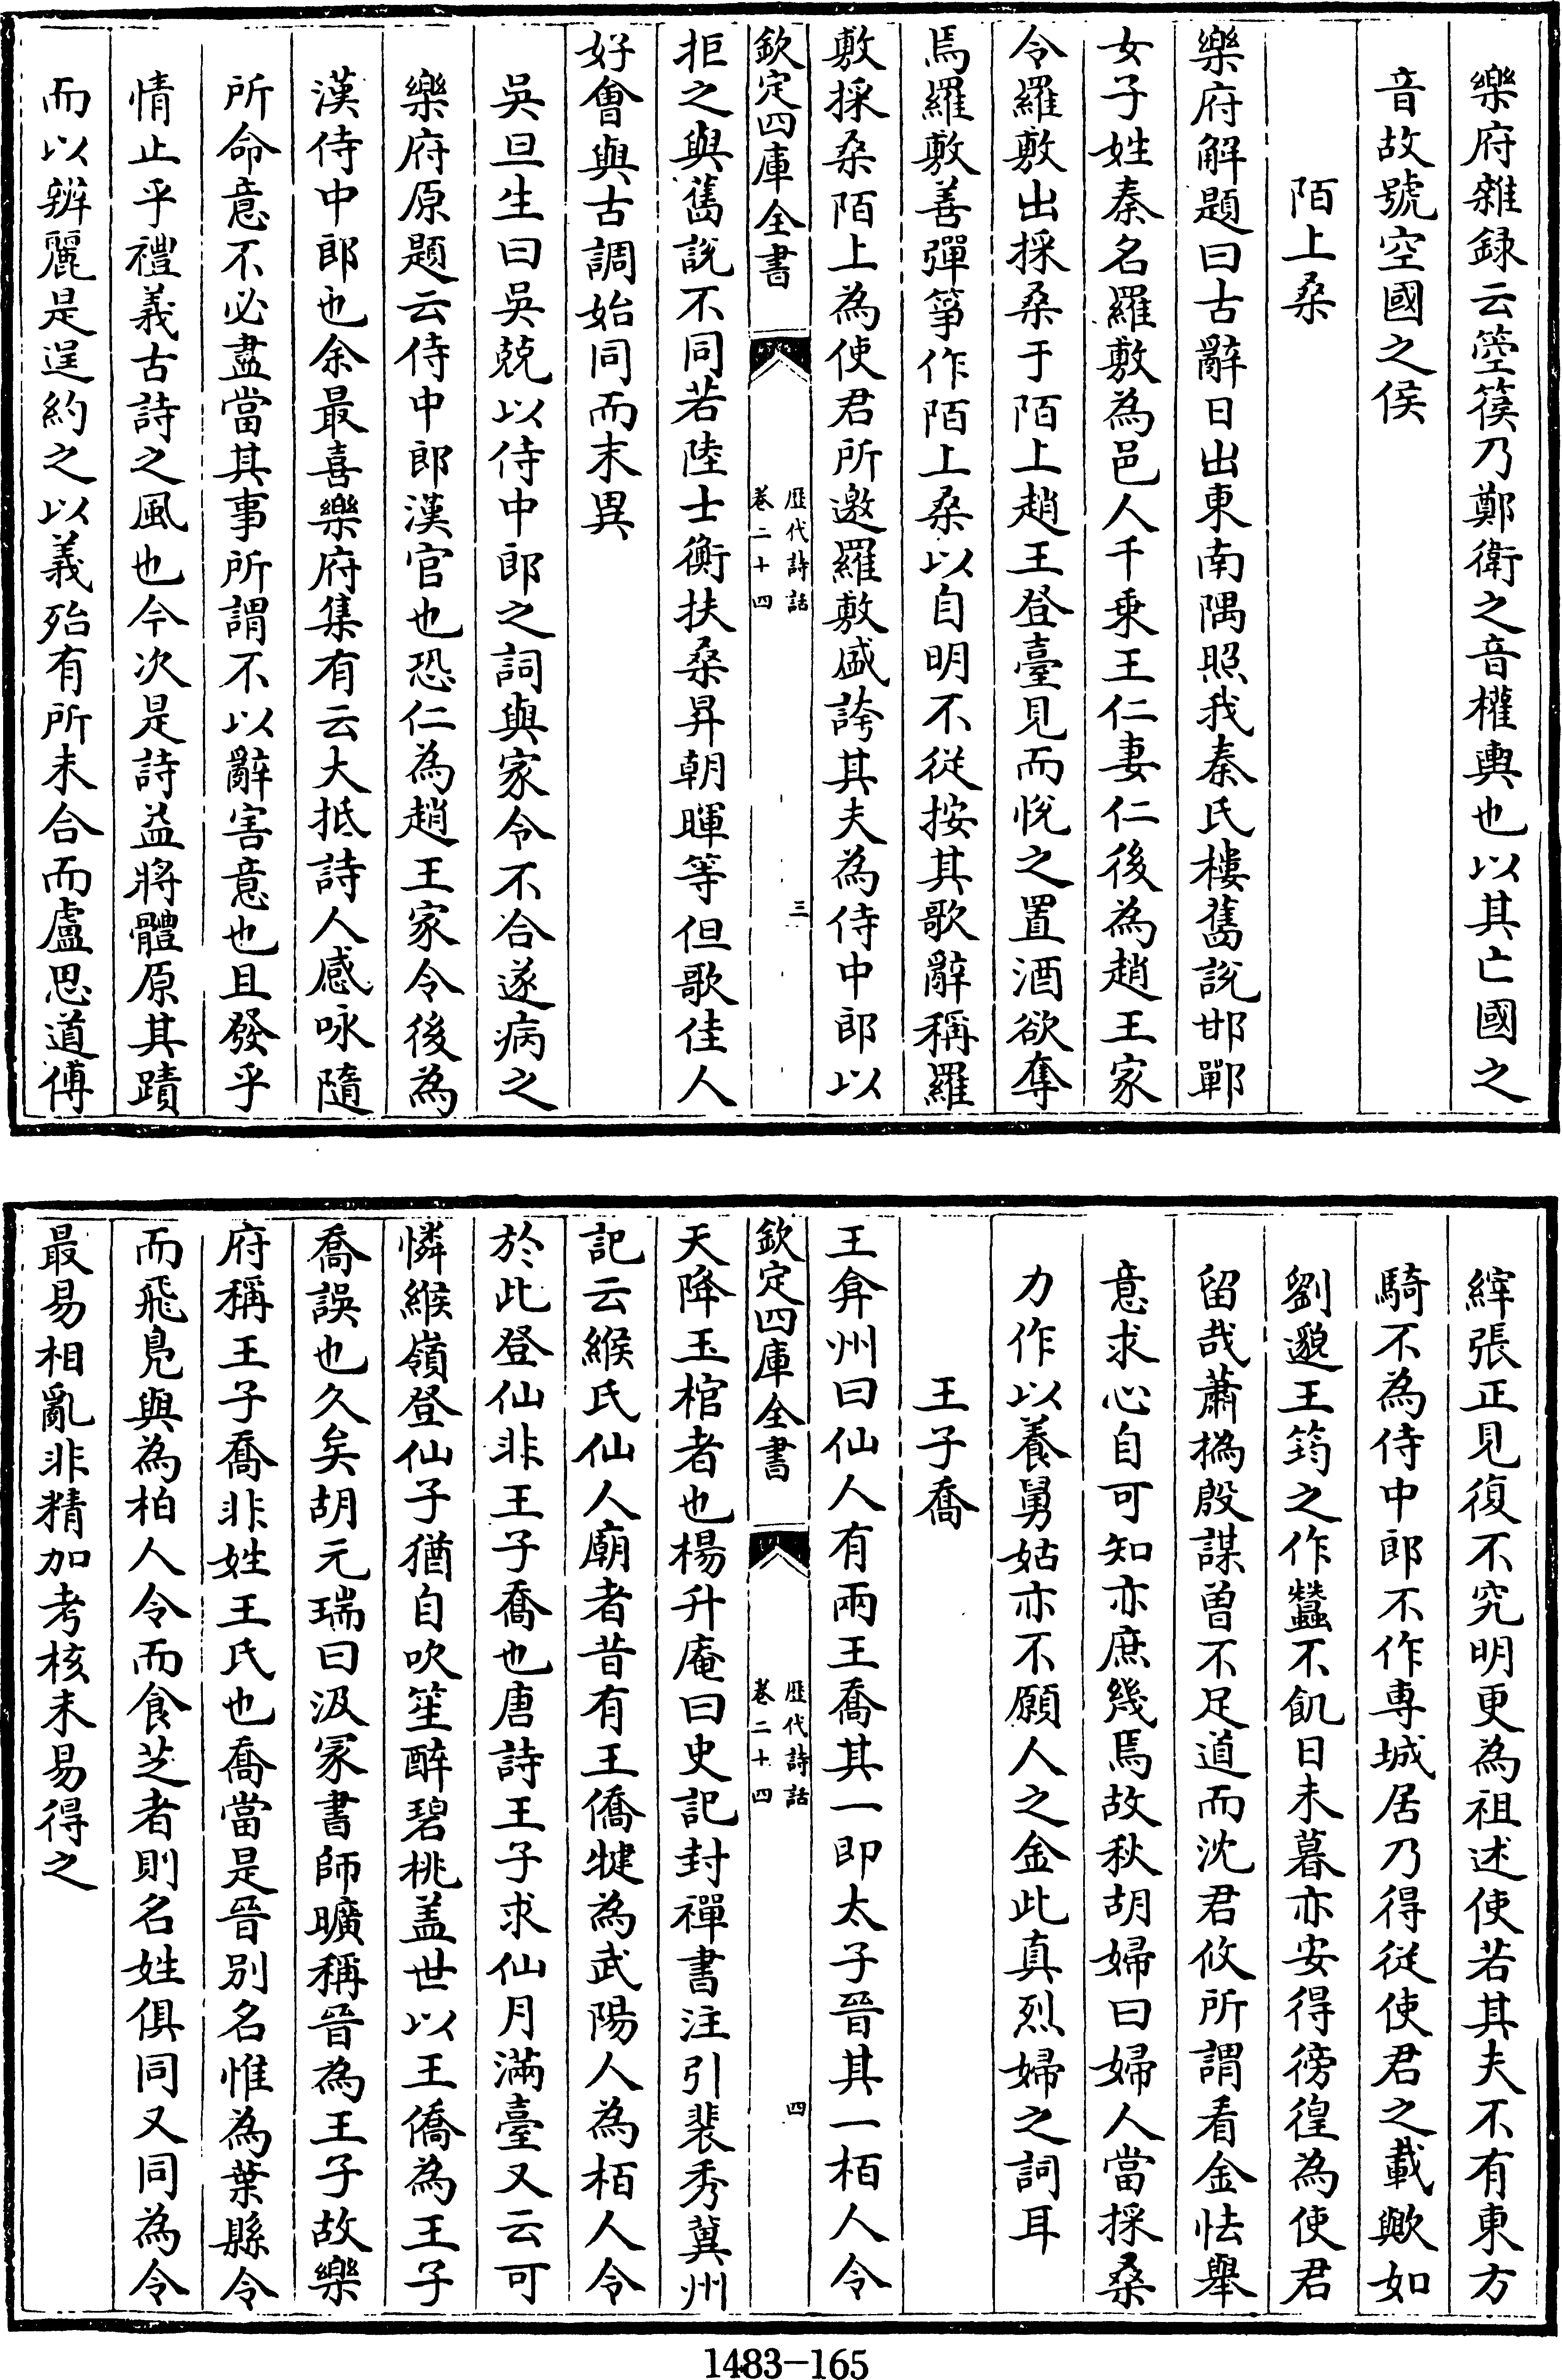 樂府雜録云箜篌乃鄭衛之音權輿也以其亡國之
音故號空國之侯
陌上桑
樂府解題曰古辭日出東南隅照我秦氏樓舊説邯鄲
女子姓秦名羅敷為邑人千乗王仁妻仁後為趙王家
令羅敷出採桑于陌上趙王登臺見而悅之置酒欲奪
焉羅敷善彈箏作陌上桑以自明不從按其歌辭稱羅
敷採桑陌上為使君所邀羅敷盛誇其夫為侍中郎以
欽定四庫全書
歷代詩話
卷二十四
三
拒之與舊説不同若陸士衡扶桑昇朝暉等但歌佳人
好會與古調始同而末異
吳旦生曰吳兢以侍中郎之詞與家令不合遂病之
樂府原題云侍中郎漢官也恐仁為趙王家令後為
漢侍中郎也余最喜樂府集有云大抵詩人感咏隨
所命意不必盡當其事所謂不以辭害意也且發乎
情止乎禮義古詩之風也今次是詩益將體原其蹟
而以辨麗是逞約之以義殆有所未合而盧思道傅
縡張正見復不究明更為祖述使若其夫不有東方
騎不為侍中郎不作専城居乃得從使君之載歟如
劉邈王筠之作蠶不飢日未暮亦安得徬徨為使君
留哉蕭撝殷謀曾不足道而沈君攸所謂看金怯舉
意求心自可知亦庶幾焉故秋胡婦曰婦人當採桑
力作以養舅姑亦不願人之金此真烈婦之詞耳
王子喬
王弇州曰仙人有兩王喬其一即太子晉其一栢人令
欽定四庫全書
歷代詩話
卷二十四
四
天降玉棺者也楊升庵曰史記封禪書注引裴秀冀州
記云緱氏仙人廟者昔有王僑犍為武陽人為栢人令
於此登仙非王子喬也唐詩王子求仙月滿臺又云可
憐緱嶺登仙子猶自吹笙醉碧桃盖世以王僑為王子
喬誤也久矣胡元瑞曰汲冢書師曠稱晉為王子故樂
府稱王子喬非姓王氏也喬當是晉別名惟為葉縣令
而飛鳧與為柏人令而食芝者則名姓俱同又同為令
最易相亂非精加考核未易得之
1483-165